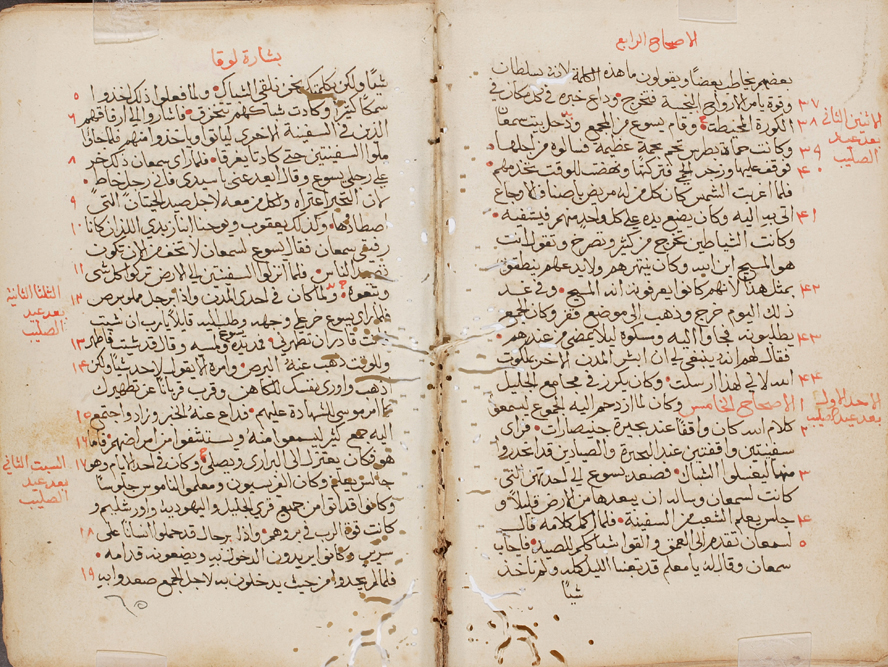 الاصحاح الرابع
بعضهم يخاطب بعضًا ويقولون ما هذه الكلمة لانه بسلطان
وقوة يامر الارواح النجسة فتخرج وذاع خبره في كل مكان في ٣٧
الكورة المحيطة وقام يسوع من المجمع ودخل بيت سمعان ٣٨
الاثنين الثاني
بعد عيد
الصليب
وكانت حماة بطرس تحم بحمى عظيمة فسالوه من اجلها ٣٩
فوقف عليها وزجر الحمى فتركتها ونهضت للوقت تخدمهم ٤٠
فلما غربت الشمس كان كل من له مريض باصناف الاوجاع
اتى به اليه وكان يضع يده على كل واحد منهم فيشفيه ٤١
وكانت الشياطين تخرج من كثير وتصرخ وتقول انت
هو المسيح ابن الله وكان ينتهرهم ولا يدعهم ينطقون
بمثل هذا لانهم كانوا يعرفون انه المسيح وفي غد ٤٢
ذلك اليوم خرج وذهب الى موضع قفر وكان الجمع
يطلبونه فجاوا اليه ومسكوه ليلا يمضي من عندهم ٤٣
فقال لهم انه ينبغي لي ان ابشر المدن الاخر بملكوت
الله لاني لهذا ارسلت وكان يكرز في مجامع الجليل ٤٤
الاصحاح الخامس وكان لما ازدحم اليه الجموع ليسمعوا ١
الاحد الاول
بعد عيد الصليب
كلام الله كان واقفًا عند بحيرة جنيصارات فراى ٢
سفينتين واقفتين عند البحيرة والصيادين قد انحدروا
منها ليغسلوا الشباك فصعد يسوع الى احدتهن التي ٣
كانت لسمعان وساله ان يبعدها من الارض قليلًا و
جلس يعلم الشعب من السفينة فلما اكمل كلامه قال ٤
لسمعان تقدم الى العمق والقوا شباككم للصيد فاجاب ٥
سمعان وقال له يا معلم قد تعبنا الليل كله ولم ناخذ
شيًا
بشارة لوقا
شيًا ولكن بكلمتك نحن نلقي الشباك ولما فعلوا ذلك اخذوا
سمكًا كثيرًا وكادت شباكهم تتخرق فاشاروا الى ارفاقهم ٥
الذين في السفينة الاخرى لياتوا وياخذوا منهم فلما جاوا
ملوا السفينتين حتى كادتا يغرقا فلما راى سمعان ذلك خر ٨
على رجلي يسوع وقال ابعد عني يا سيدي فاني رجل خاطي
لان التحير اعتراه وكل من معه لاجل صيد الحيتان التي ٩
اصطادوها وكذلك يعقوب ويوحنا ابنا زبدي اللذان كانا ١٠
رفيقي سمعان فقال يسوع لسمعان لا تخف من الان تكون
تصيد الناس فلما انزلوا السفينتين الى الارض تركوا كل شي ١١
وتبعوه ولما كان في احدى المدن واذا برجل مملو برص ١٢
الثلثا الثانية
بعد عيد
الصليب
فلما راى يسوع خر على وجهه وطلب اليه قايلًا يا رب ان شيت
فانت قادر ان تطهرني فمد يده يسوع ولمسه وقال قد شيت فاطهر ١٣
وللوقت ذهب عنه البرص وامره الا يقول لاحد شيًا ولكن ١٤
اذهب واوري نفسك للكاهن وقرب قربانًا عن تطهيرك
كما امر موسى للشهادة عليهم فذاع عنه الخبر وزاد واجتمع ١٥
اليه جمع كثير ليسمعوا منه ويستشفوا من امراضهم فاما ١٦
هو فكان يعتزل الى البراري ويصلي وكان في احد الايام وهو ١٧
السبت الثاني
بعد عيد
الصليب
جالس يعلم وكان الفريسيون ومعلموا الناموس جلوسًا
وكانوا قد اتوا من جميع قرى الجليل واليهودية واورشليم و
كانت قوة الرب في بروهم واذا برجال قد حملوا انسانًا على ١٨
سرير وكانوا يريدون الدخول به ويضعونه قدامه
فلما لم يجدوا من حيث يدخلون به لاجل الجمع صعدوا به ١٩